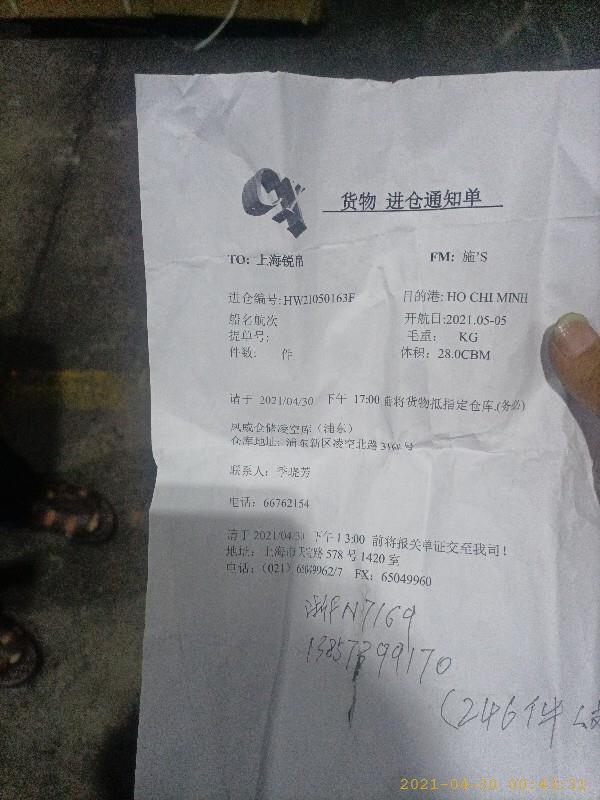 货物 进仓通知单
TO: 上海锐帛 FM: 施'S
进仓编号: HW21050163F 目的港: HO CHI MINH
船名航次 开航日:2021.05-05
提单号: 毛重: KG
件数: 件 体积: 28.0CBM
请于 2021/04/30 下午 17:00 前将货物抵指定仓库.(务必)
凤威仓储凌空库（浦东）
仓库地址: 浦东新区凌空北路 号
联系人: 季晓芳
电话: 66762154
请于 2021/04/30 下午 13:00 前将报关单证交至我司!
地址: 上海市 路 578 号 1420 室
电话: (021) 65049962/7 FX: 65049960
N7169
13857399170
(246件
2021-04-30